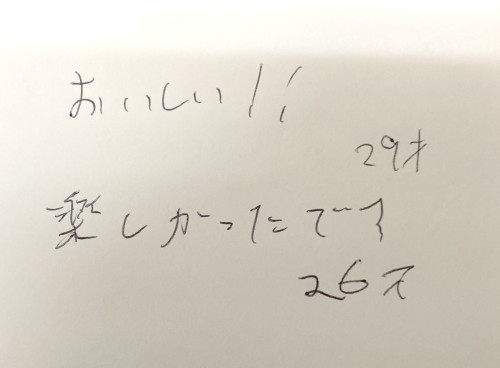 おいしい!!
29才
楽しかったです
26才